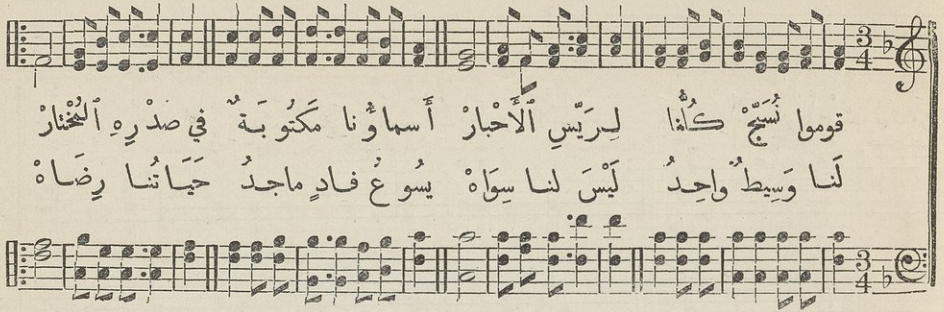 قوموا نُسَبِّحْ كُلُّنا لِرَيِّسِ ٱلْأَحْبارْ أَسماؤُنا مَكتُوبَةٌ في صدْرِهِ ٱلمُخْتارْ
لَنا وَسِيطٌ واحِدُ لَيْسَ لنا سِوَاهْ يسُوعُ فادٍ ماجدُ حَيَاتُنا رِضَاهْ